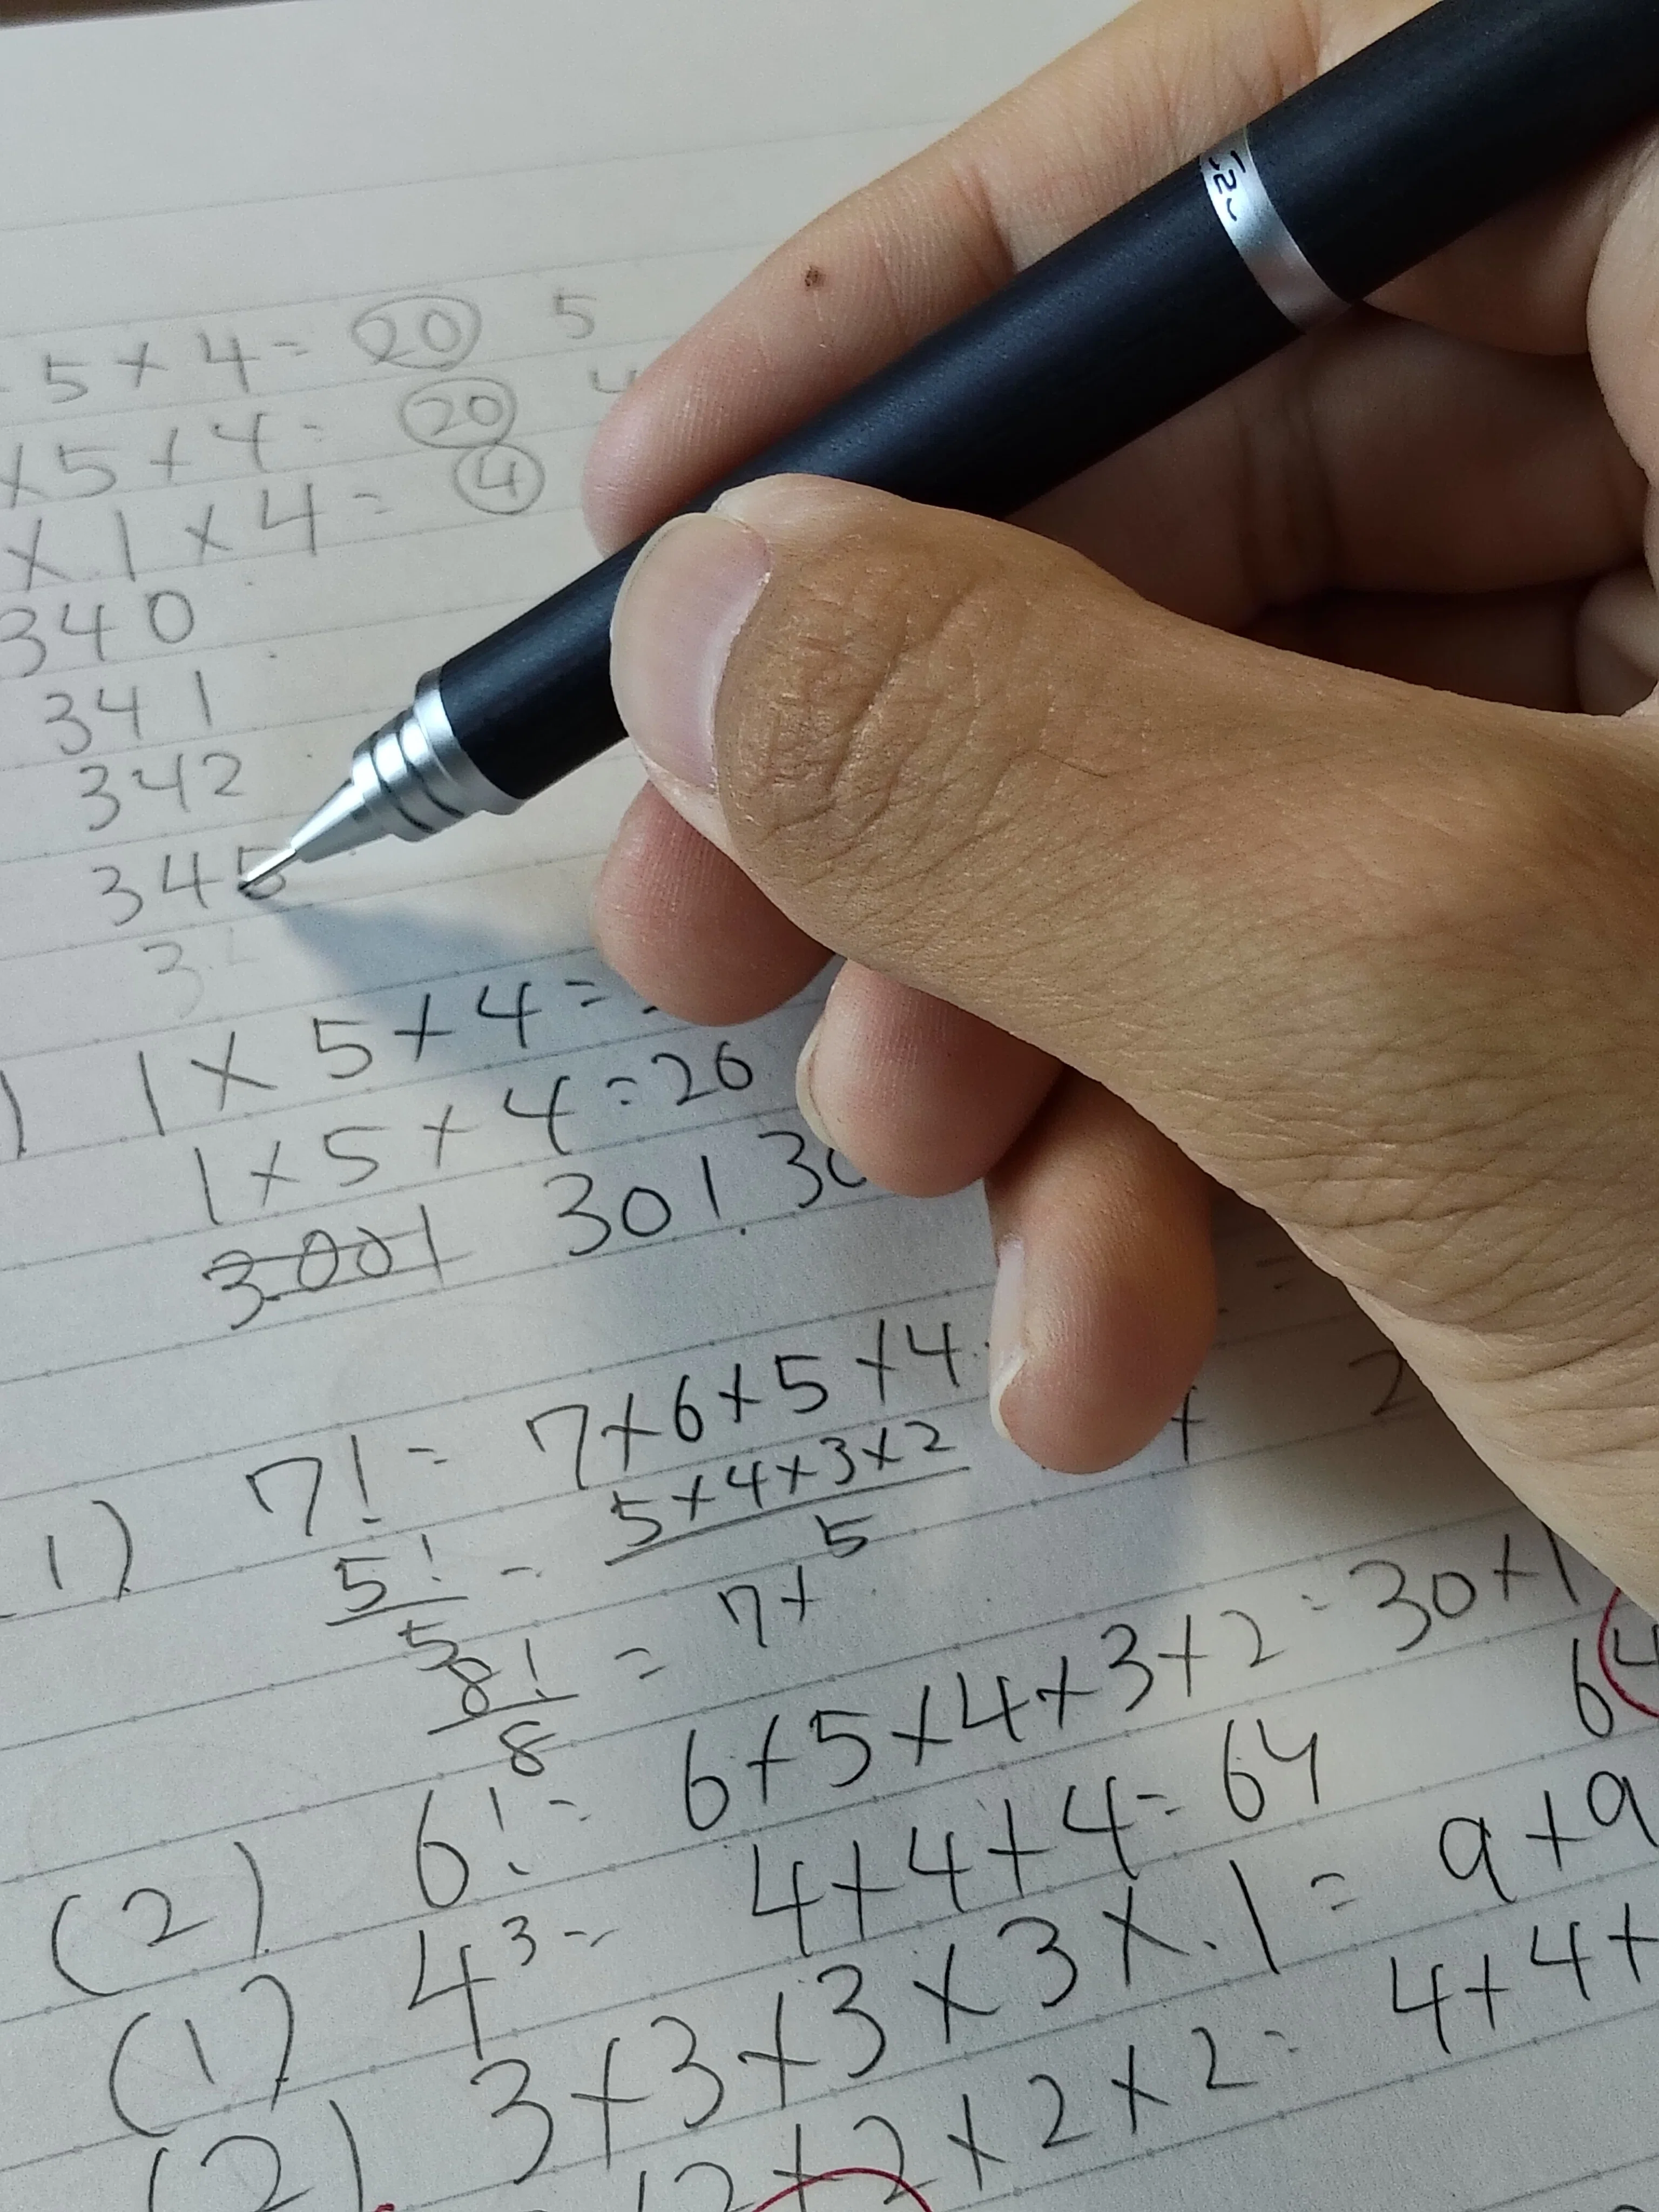 5 × 4 = 20 5
× 5 × 4 = 20 4
× 1 × 4 = 4
340
341
342
345
3
) 1 × 5 × 4 =
1 × 5 × 4 = 20
3001 301. 30
1) 7! = 7 × 6 × 5 × 4
5! = 5 × 4 × 3 × 2
5 5
8! = 7 ×
8
(2) 6! = 6 × 5 × 4 × 3 × 2 = 30 × 1
(1) 4³ = 4 × 4 × 4 = 64 64
(2) 3 × 3 × 3 × 3 × 1 = 9 × 9
2 × 2 × 2 × 2 = 4 × 4 ×